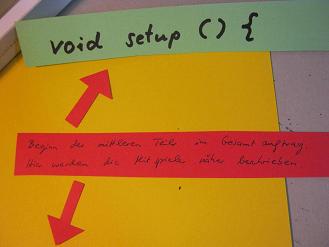 void setup () {
Beginn des mittleren Teils im Gesamtauftrag.
Hier werden die Mitspieler näher beschrieben.